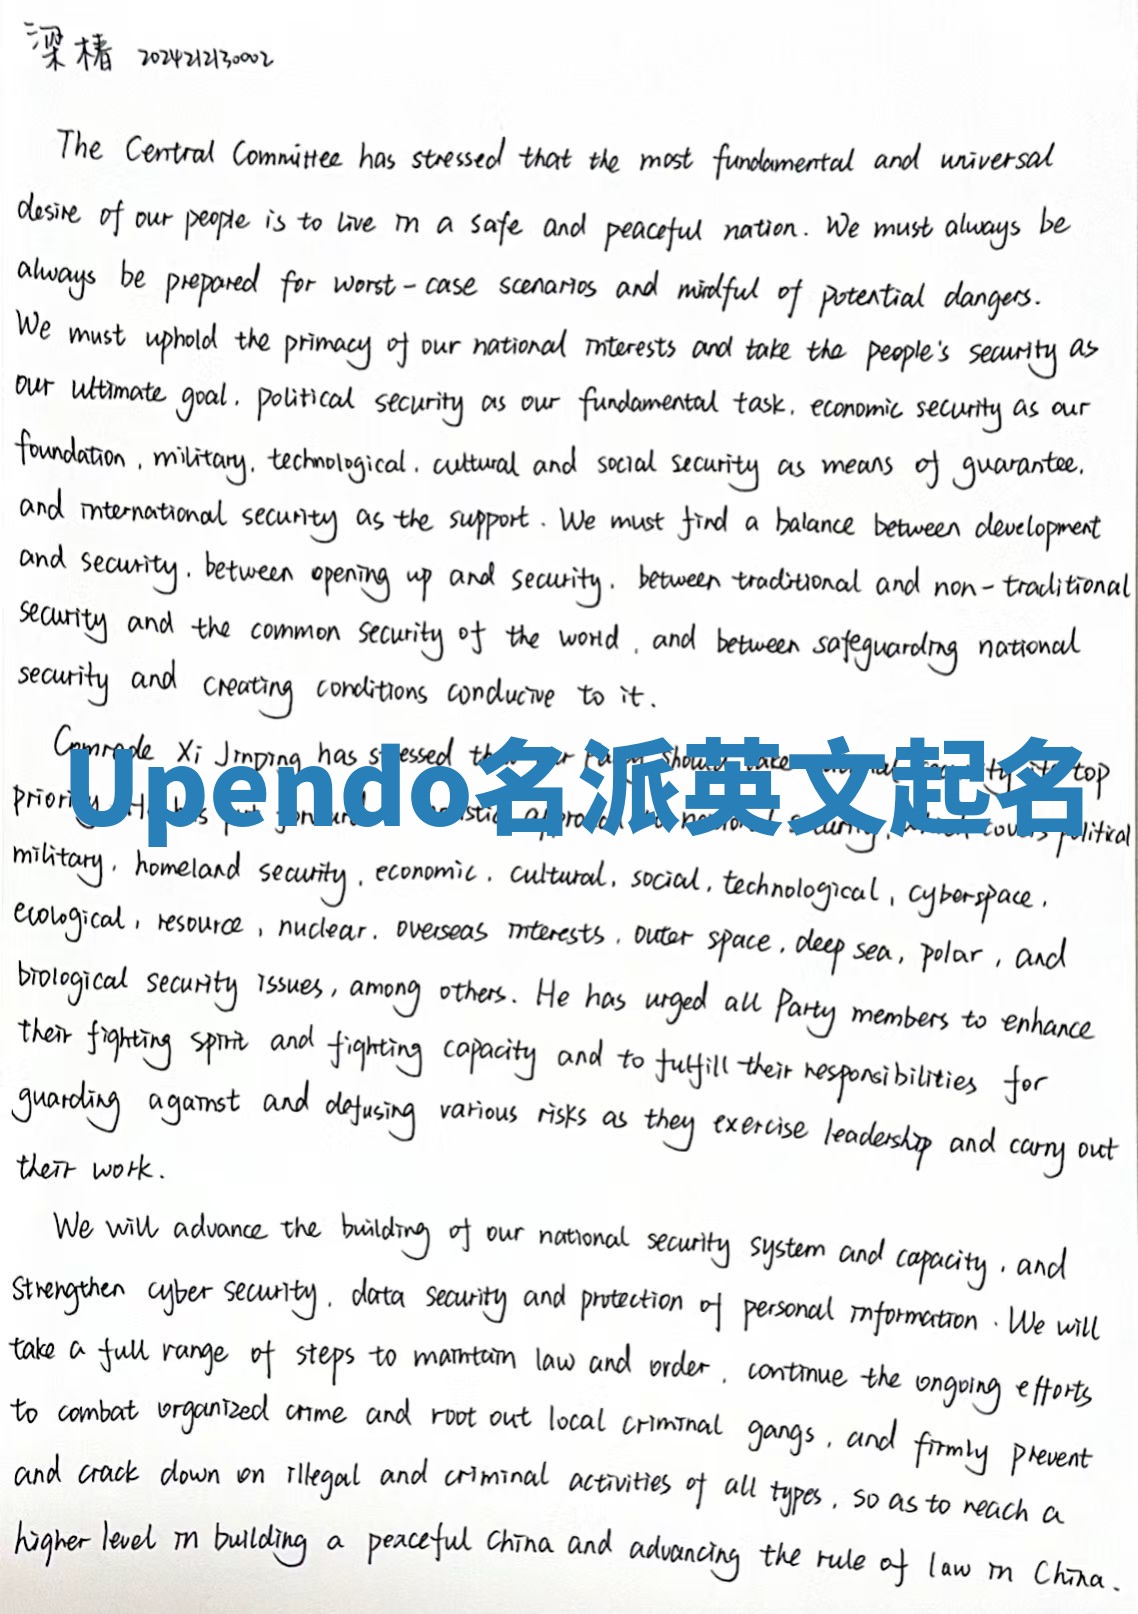 梁椿 2024212130002
The Central Committee has stressed that the most fundamental and universal
desire of our people is to live in a safe and peaceful nation. We must always be
always be prepared for worst-case scenarios and mindful of potential dangers.
We must uphold the primacy of our national interests and take the people's security as
our ultimate goal, political security as our fundamental task, economic security as our
foundation, military, technological, cultural and social security as means of guarantee,
and international security as the support. We must find a balance between development
and security, between opening up and security, between traditional and non-traditional
security and the common security of the world, and between safeguarding national
security and creating conditions conducive to it.
Comrade Xi Jinping has stressed should take top
Upendo名派英文起名
priority. He has national security, which covers political
military, homeland security, economic, cultural, social, technological, cyberspace,
ecological, resource, nuclear, overseas interests, outer space, deep sea, polar, and
biological security issues, among others. He has urged all Party members to enhance
their fighting spirit and fighting capacity and to fulfill their responsibilities for
guarding against and defusing various risks as they exercise leadership and carry out
their work.
We will advance the building of our national security system and capacity, and
strengthen cyber security, data security and protection of personal information. We will
take a full range of steps to maintain law and order, continue the ongoing efforts
to combat organized crime and root out local criminal gangs, and firmly prevent
and crack down on illegal and criminal activities of all types, so as to reach a
higher level in building a peaceful China and advancing the rule of law in China.